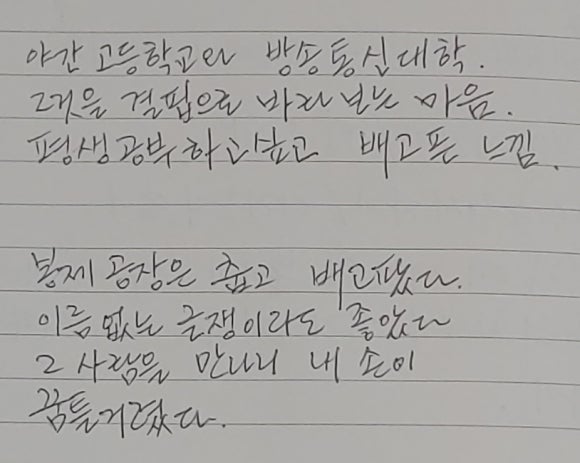 야간 고등학교와 방송통신대학.
그것을 결핍으로 바라보는 마음.
평생공부하고싶고 배고픈 느낌.
봉제 공장은 춥고 배고팠다.
이름 없는 글쟁이라도 좋았다
그 사람을 만나러 내 손이
꿈틀거렸다.